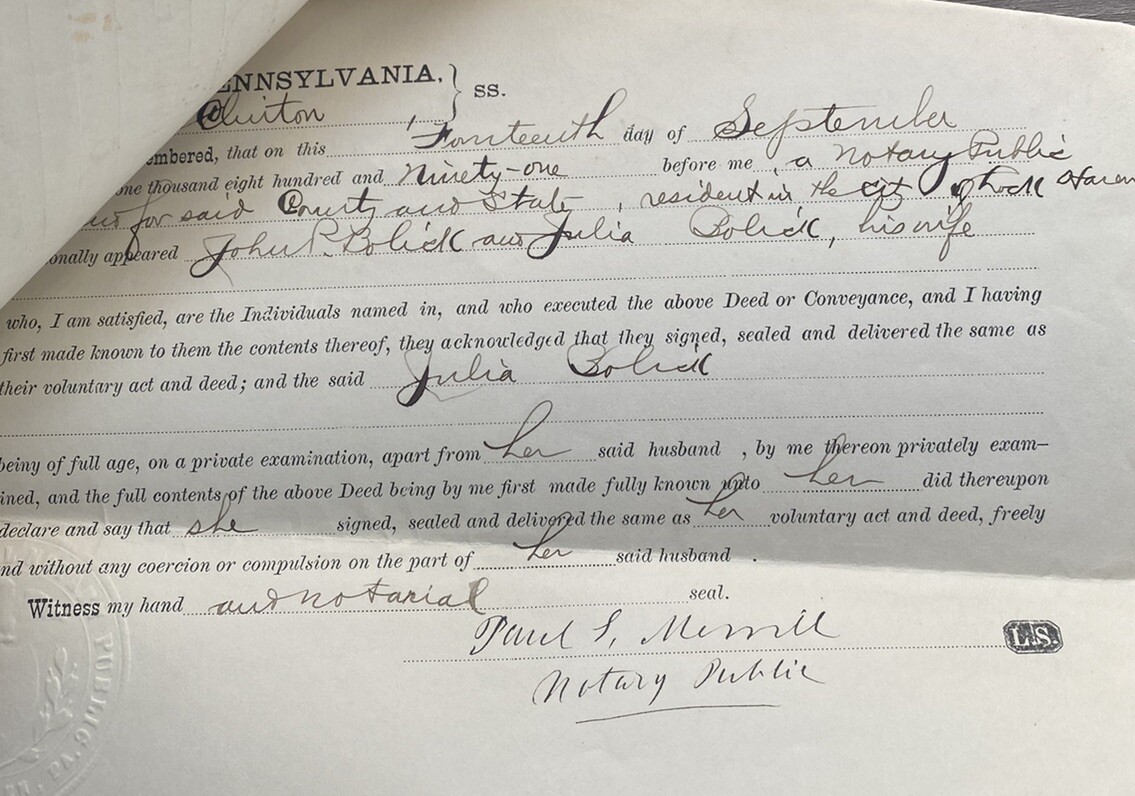 ENNSYLVANIA, } ss.
Clinton
embered, that on this Fourteenth day of September
one thousand eight hundred and Ninety-one before me, a Notary Public
for said County and State, resident in the city of Lock Haven
onally appeared John P. Bolick and Julia Bolick, his wife
who, I am satisfied, are the Individuals named in, and who executed the above Deed or Conveyance, and I having
first made known to them the contents thereof, they acknowledged that they signed, sealed and delivered the same as
their voluntary act and deed; and the said Julia Bolick
beiny of full age, on a private examination, apart from her said husband , by me thereon privately exam-
ined, and the full contents of the above Deed being by me first made fully known unto her did thereupon
declare and say that she signed, sealed and delivered the same as her voluntary act and deed, freely
nd without any coercion or compulsion on the part of her said husband .
Witness my hand and notarial seal.
Paul S. Merrill L.S.
Notary Public
PUBLIC
PA.